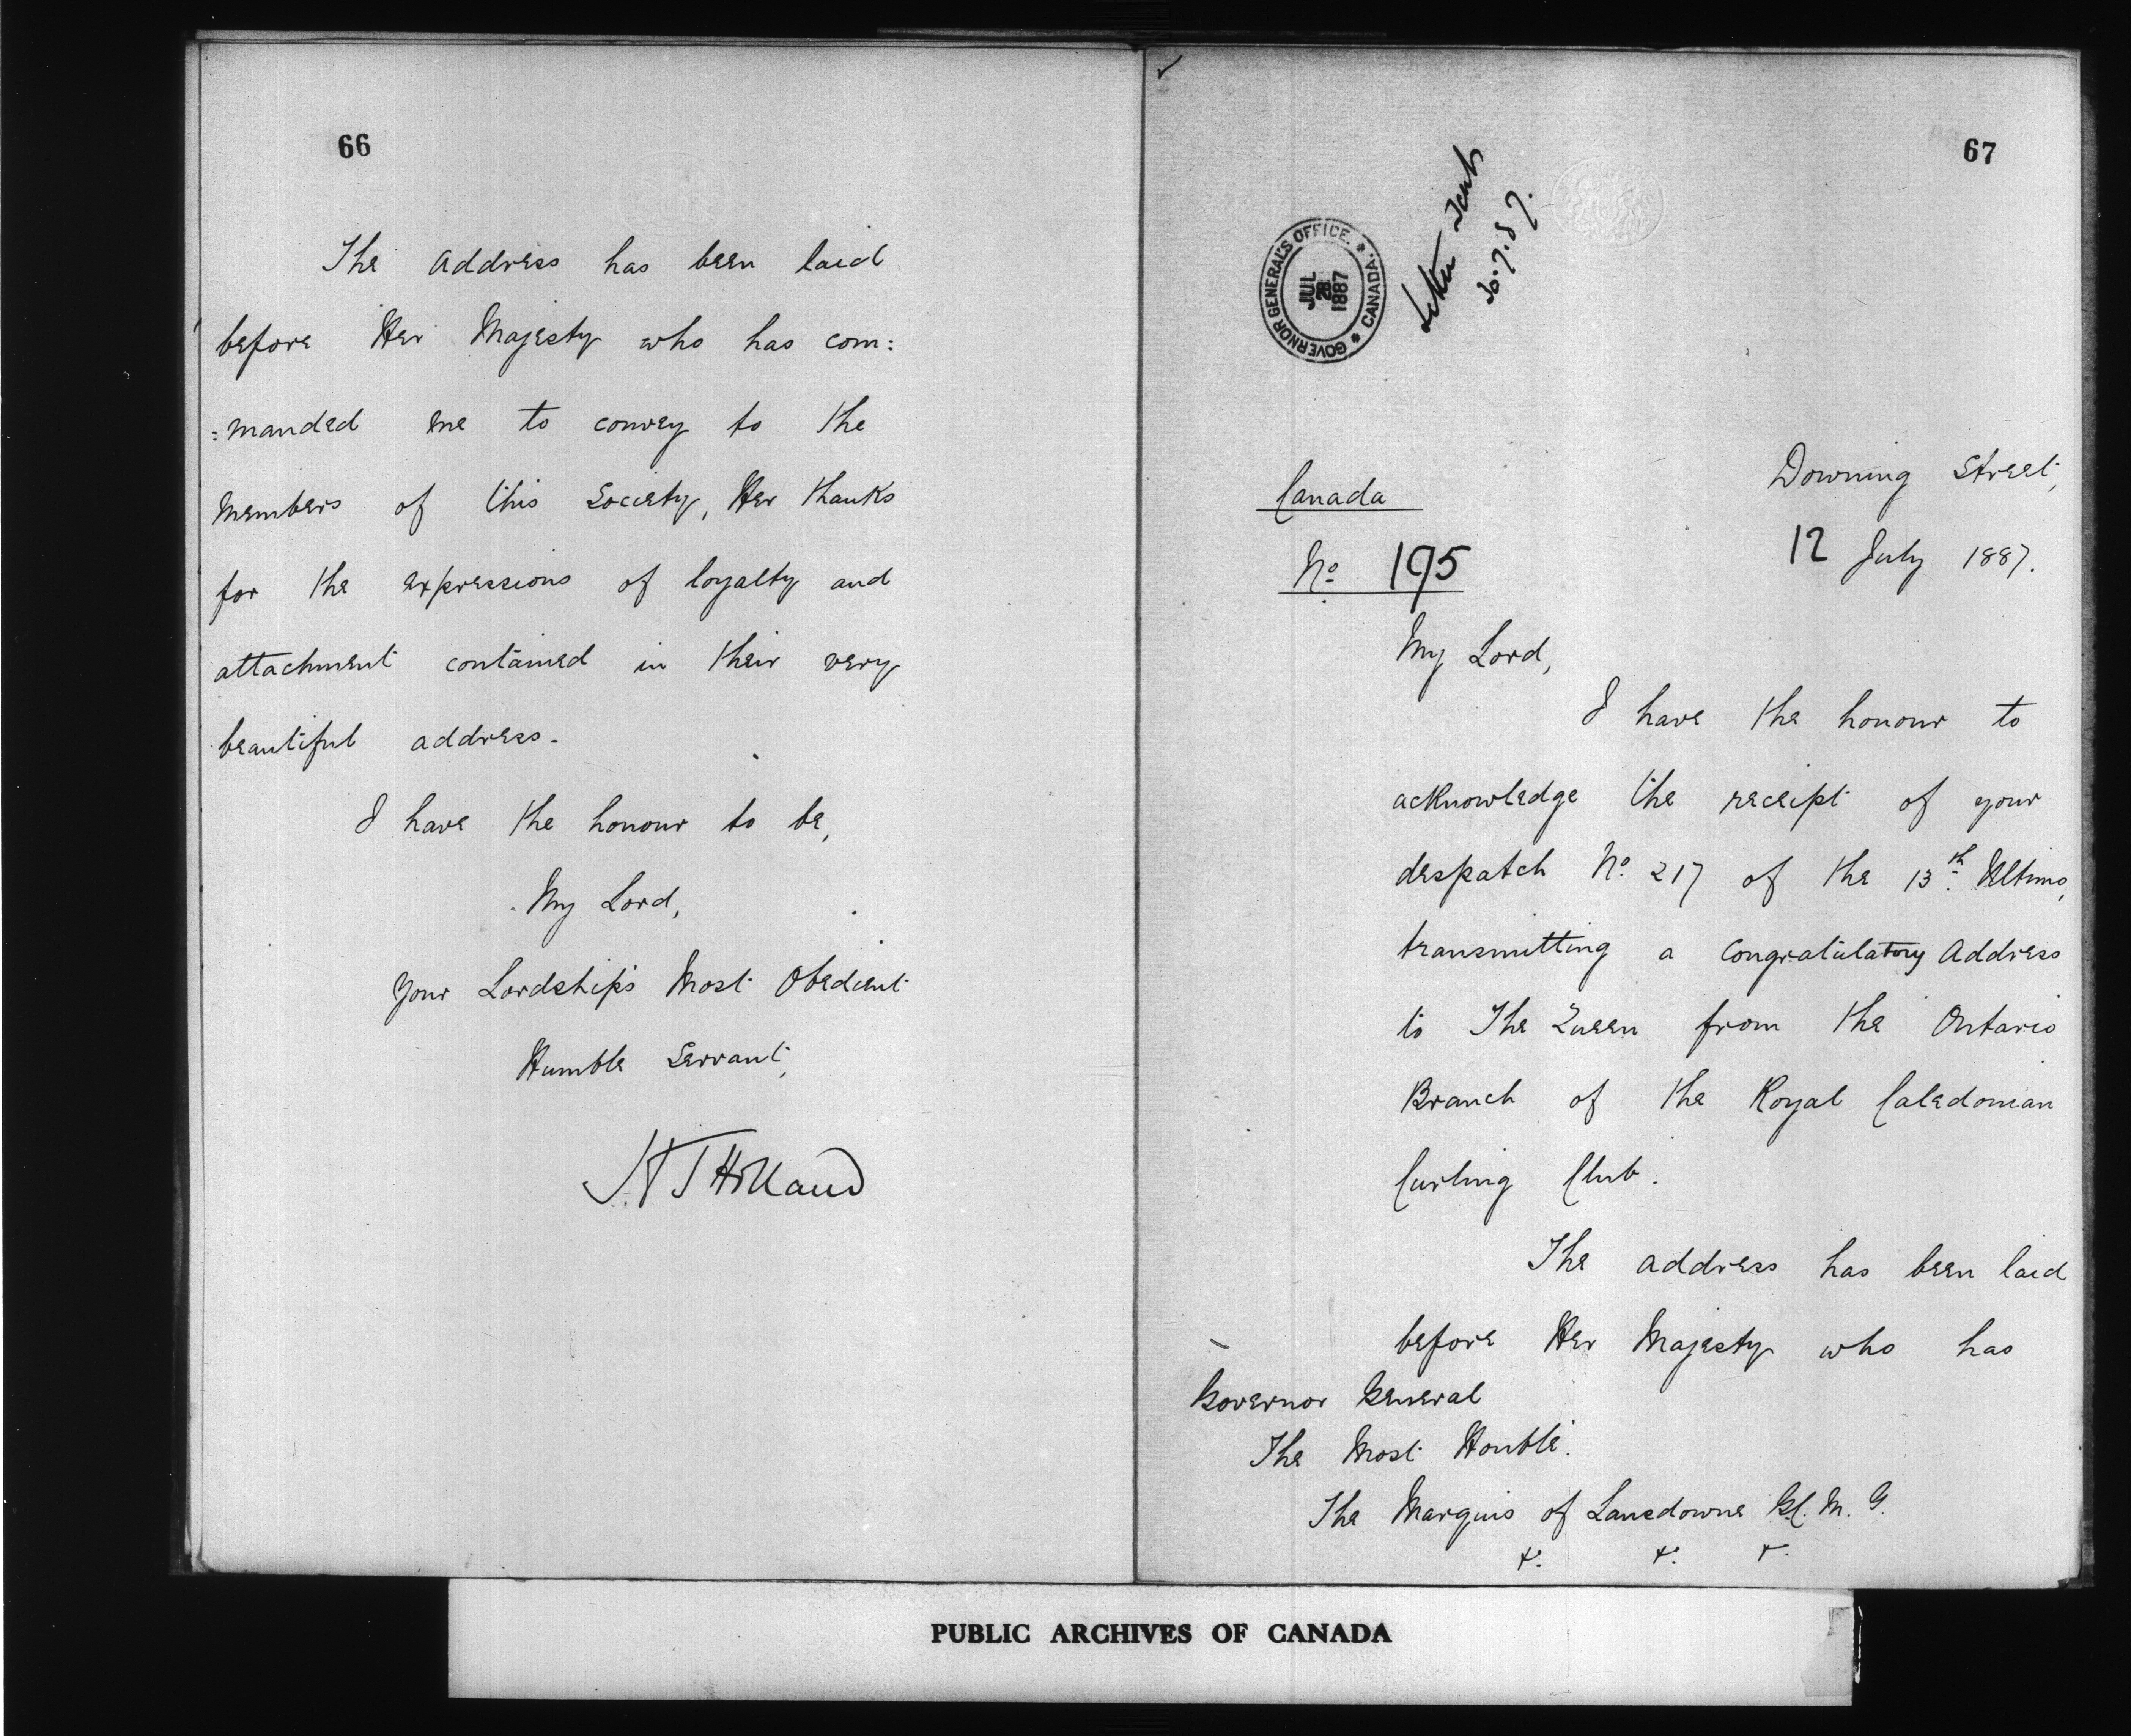 66
The Address has been laid
before Her Majesty who has com:
:manded me to convey to the
Members of this Society, Her thanks
for the expressions of loyalty and
attachment contained in their very
beautiful address.
I have the honour to be,
My Lord,
Your Lordship's Most Obedient
Humble Servant,
H T Holland
67
GOVERNOR GENERAL'S OFFICE. * CANADA. *
JUL
28
1887
Canada
No 195
Downing Street,
12 July 1887.
My Lord,
I have the honour to
acknowledge the receipt of your
despatch No. 217 of the 13th. Ultimo,
transmitting a Congratulatory Address
to The Queen from the Ontario
Branch of the Royal Caledonian
Curling Club.
The address has been laid
before Her Majesty who has
Governor General
The Most Honble.
The Marquis of Lansdowne G.C.M.G.
&. &. &.
PUBLIC ARCHIVES OF CANADA